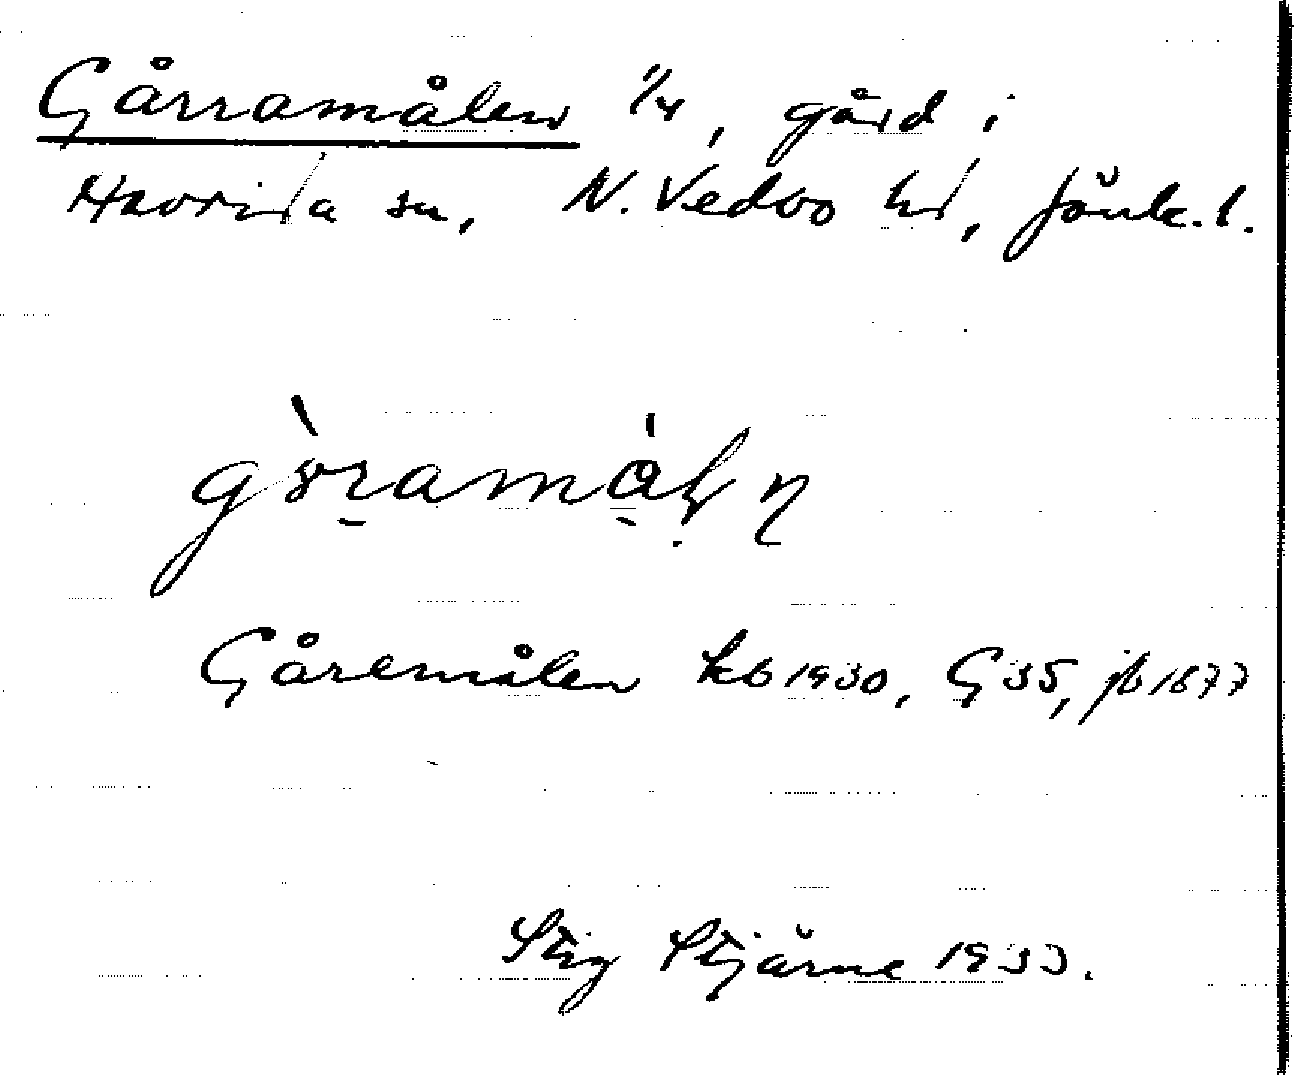 Gårramålen 1/4, gård i
Havrida sn, N. Vedbo hd, Jönk. l.
Gåremålen kb 1930, G 35, jb 1677
Stig Stjärne 1933.